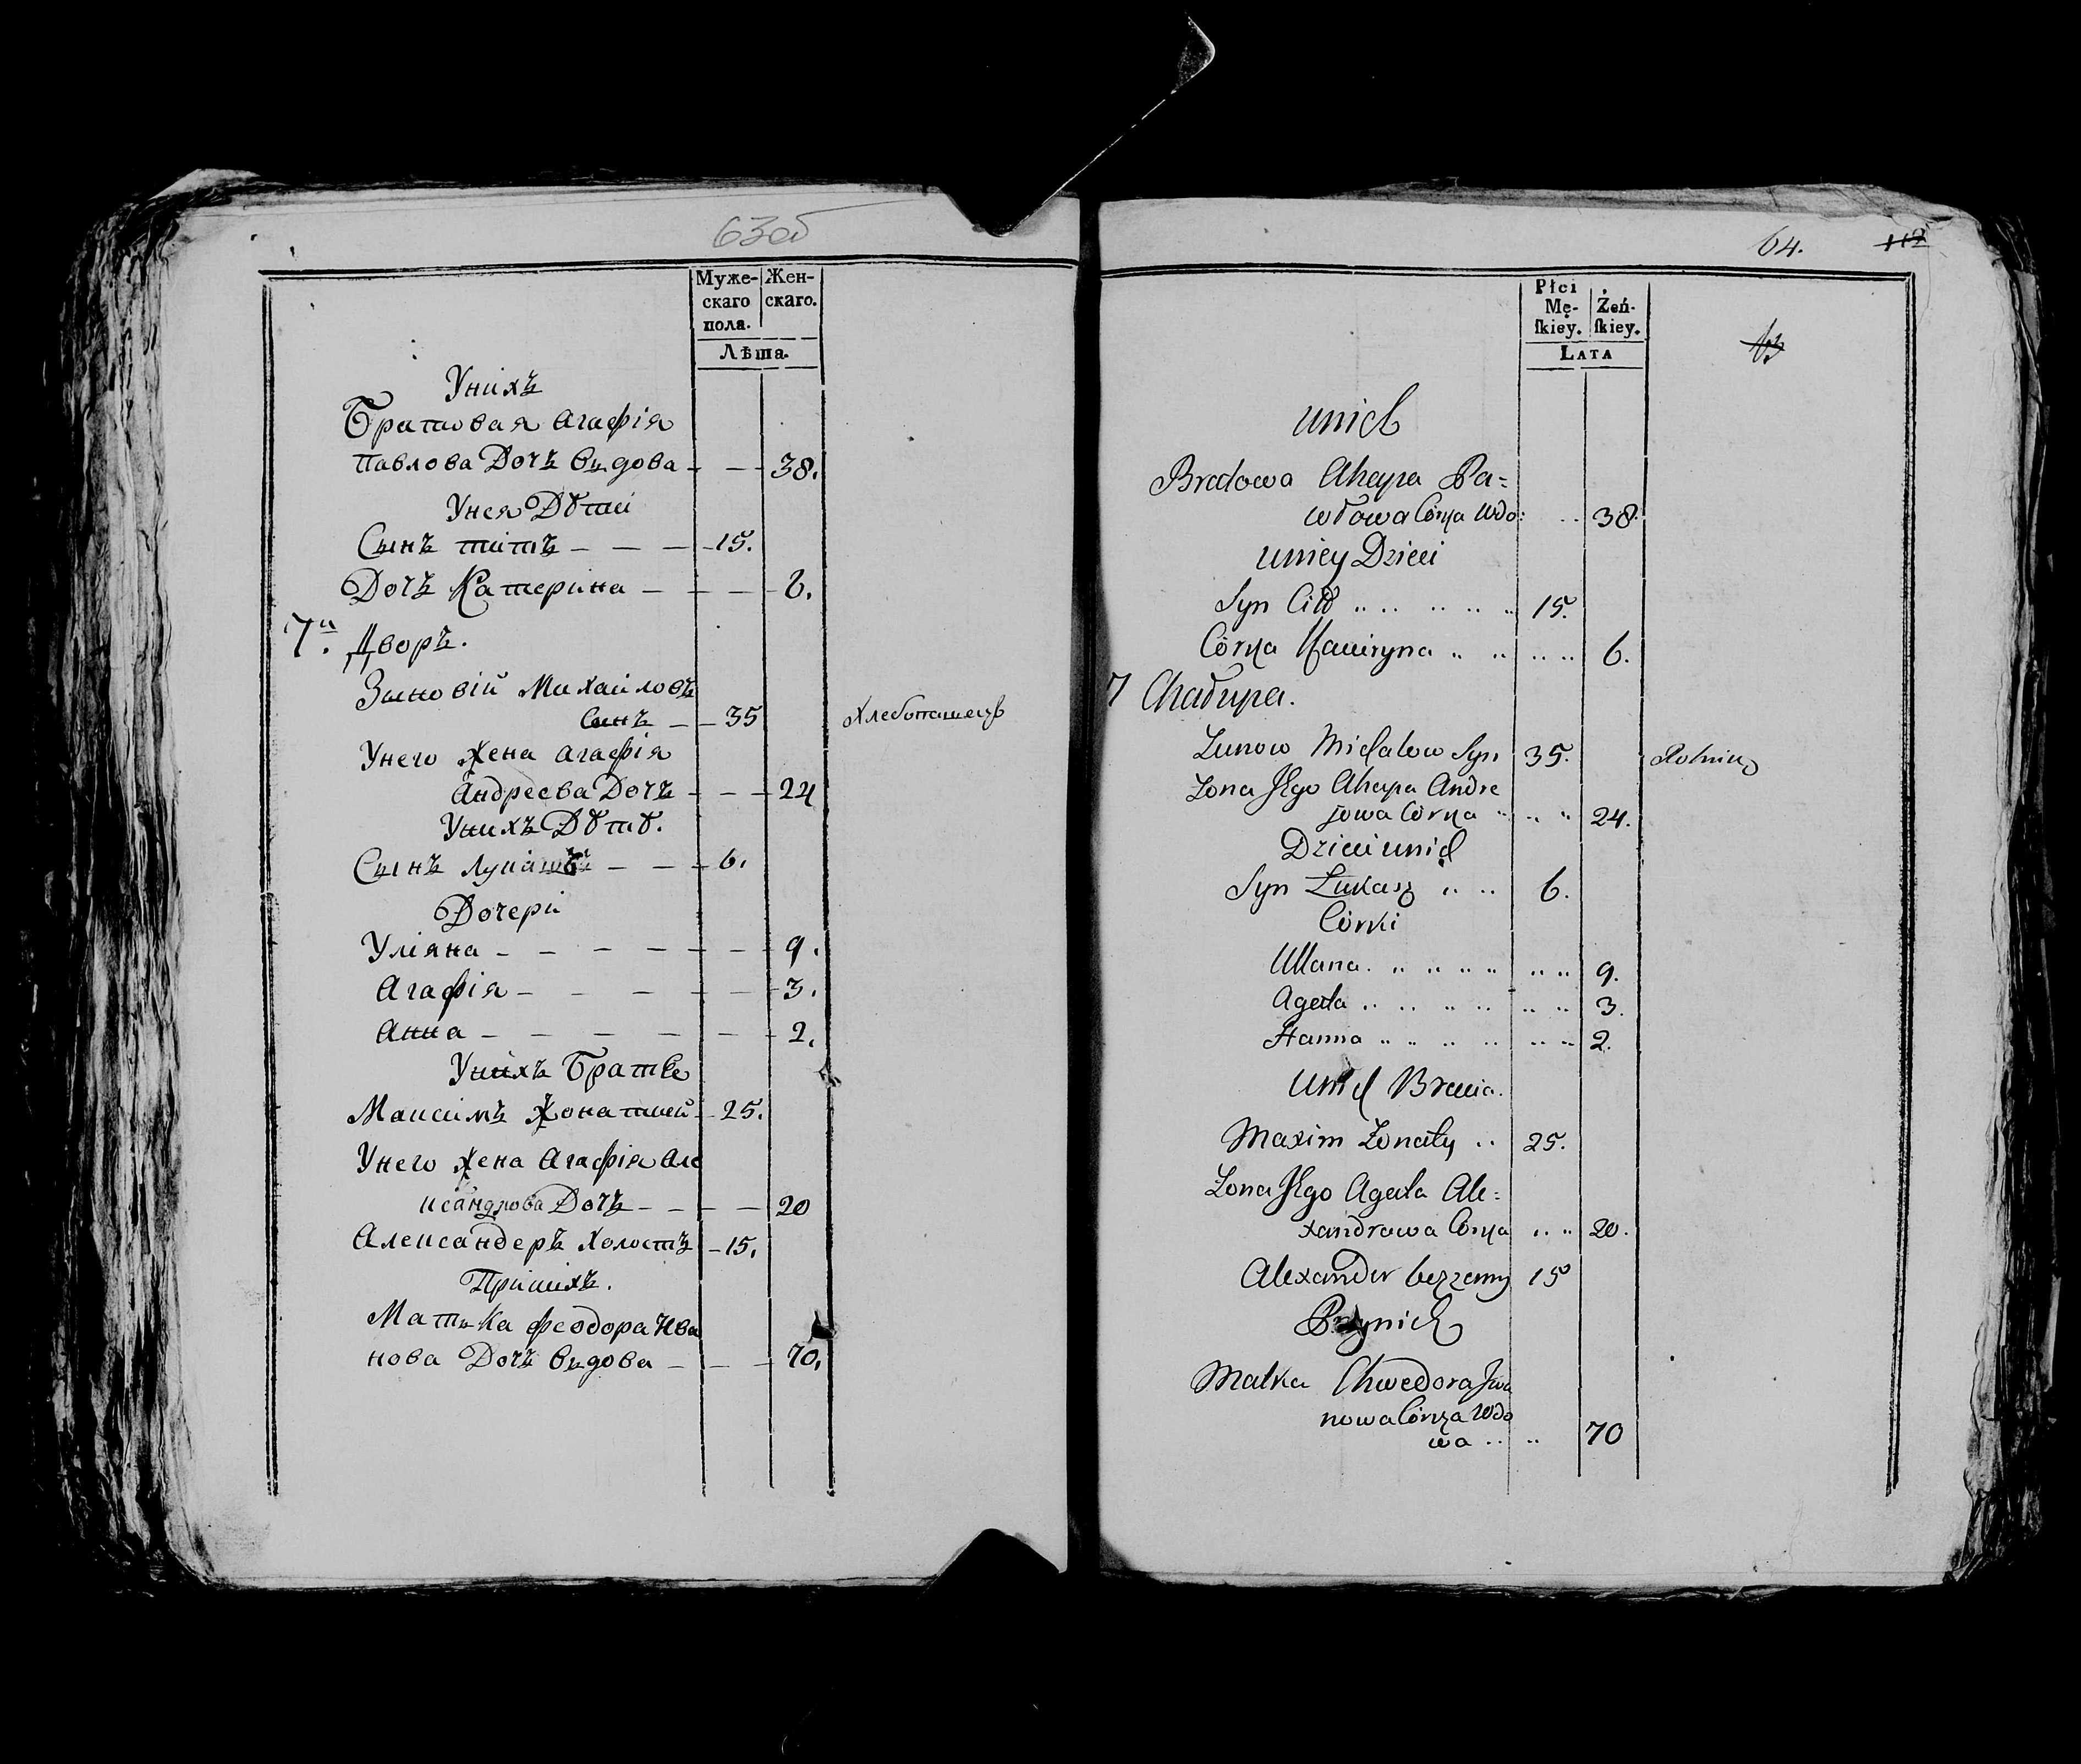 63об
Муже-
скаго
пола.
Жен-
скаго.
Лѣта.
Унихъ
Братовая Агафія
Павлова Дочь Вьдова - - 38.
Унея Дѣти
Сынъ титъ - - - 15.
Дочь Катерина - - - 6.
7й. Дворъ.
Зиновій Михайловъ
Сынъ - - 35
Хлебопашецъ
Унего Жена Агафія
Андреева Дочь - - - 24
Унихъ Дѣтѣ.
Сынъ Лукашъ - - - 6.
Дочери
Уліяна - - - - - - 9.
Агафія - - - - - 3.
Анна - - - - - - 2.
Унихъ Братѣя
Максимъ Жонатией - 25.
Унего Жена Агафія Але
ксандрова Дочь - - - - 20
Александеръ Холостъ - 15.
Принихъ.
Матька Феодора Ива
нова Дочь Вьдова - - - 70.
64. 112
Płci
Mę-
ſkiey.
Żeń-
ſkiey.
LATA
unich
Bratowa Ahapa Pa=
włowa Córka Wdo: .. 38.
uniey Dzieci
Syn Cit .. .. .. .. .. 15.
Córka Kaciryna .. .. .. .. 6.
7 Chałupa.
Zunow Michałow Syn 35.
Rolnik
Zona Jego Ahapa Andre
jowa Córka .. .. .. 24.
Dzieci unich
Syn Łukasz .. .. 6.
Córki
Ullana. .. .. .. .. .. .. 9.
Agata .. .. .. .. .. .. 3.
Hanna .. .. .. .. .. .. 2.
Unich Bracia.
Maxim Żonaty .. 25.
Zona Jego Agata Ale=
xandrowa Córka .. .. 20.
Alexander bezzenny 15
Przynich
Matka Chwedora Jwa
nowa Córka Wdo
wa .. .. 70